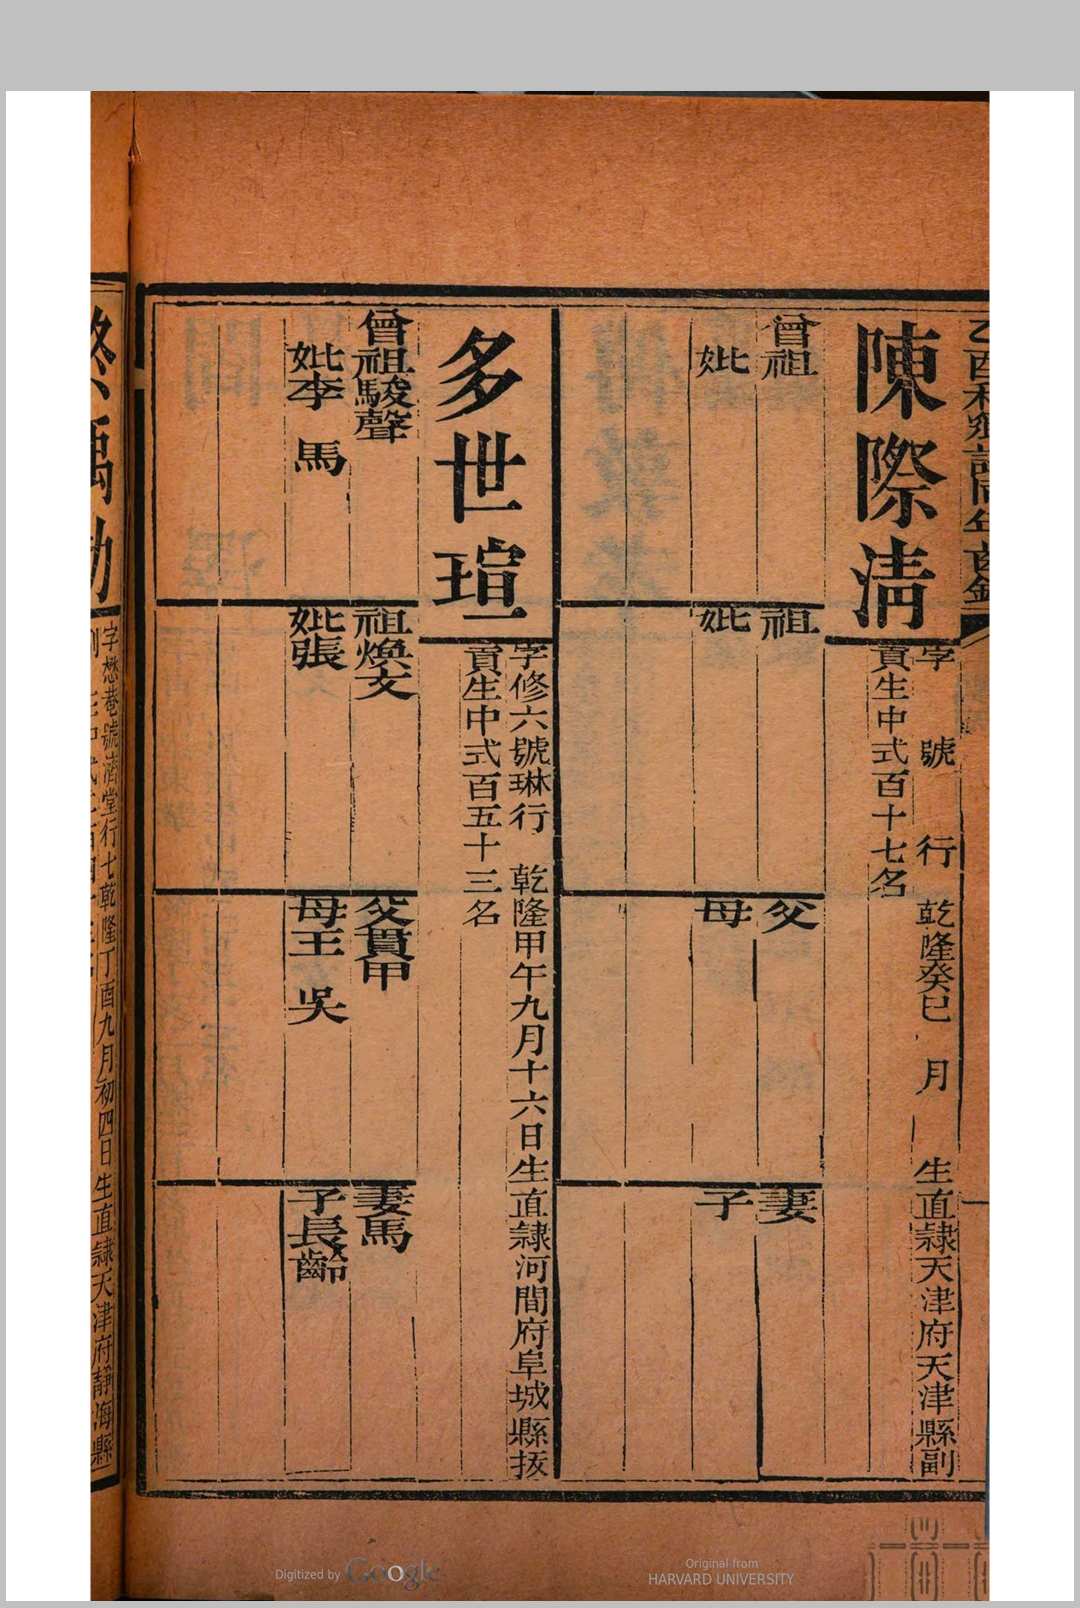 陳際淸
字　號　行　乾隆癸巳　月　生直隷天津府天津縣副
貢生中式百十七名
曾祖
妣
祖
妣
父
母
妻
子
多世瑄
字修六號琳行　乾隆甲午九月十六日生直隷河間府阜城縣拔
貢生中式百五十三名
曾祖駿聲
妣李　馬
祖煥文
妣張
父貫甲
母王　吳
妻馬
子長齡
字懋菴號濟堂行七乾隆丁酉九月初四日生直隷天津府靜海縣
Digitized by Google
Original from
HARVARD UNIVERSITY